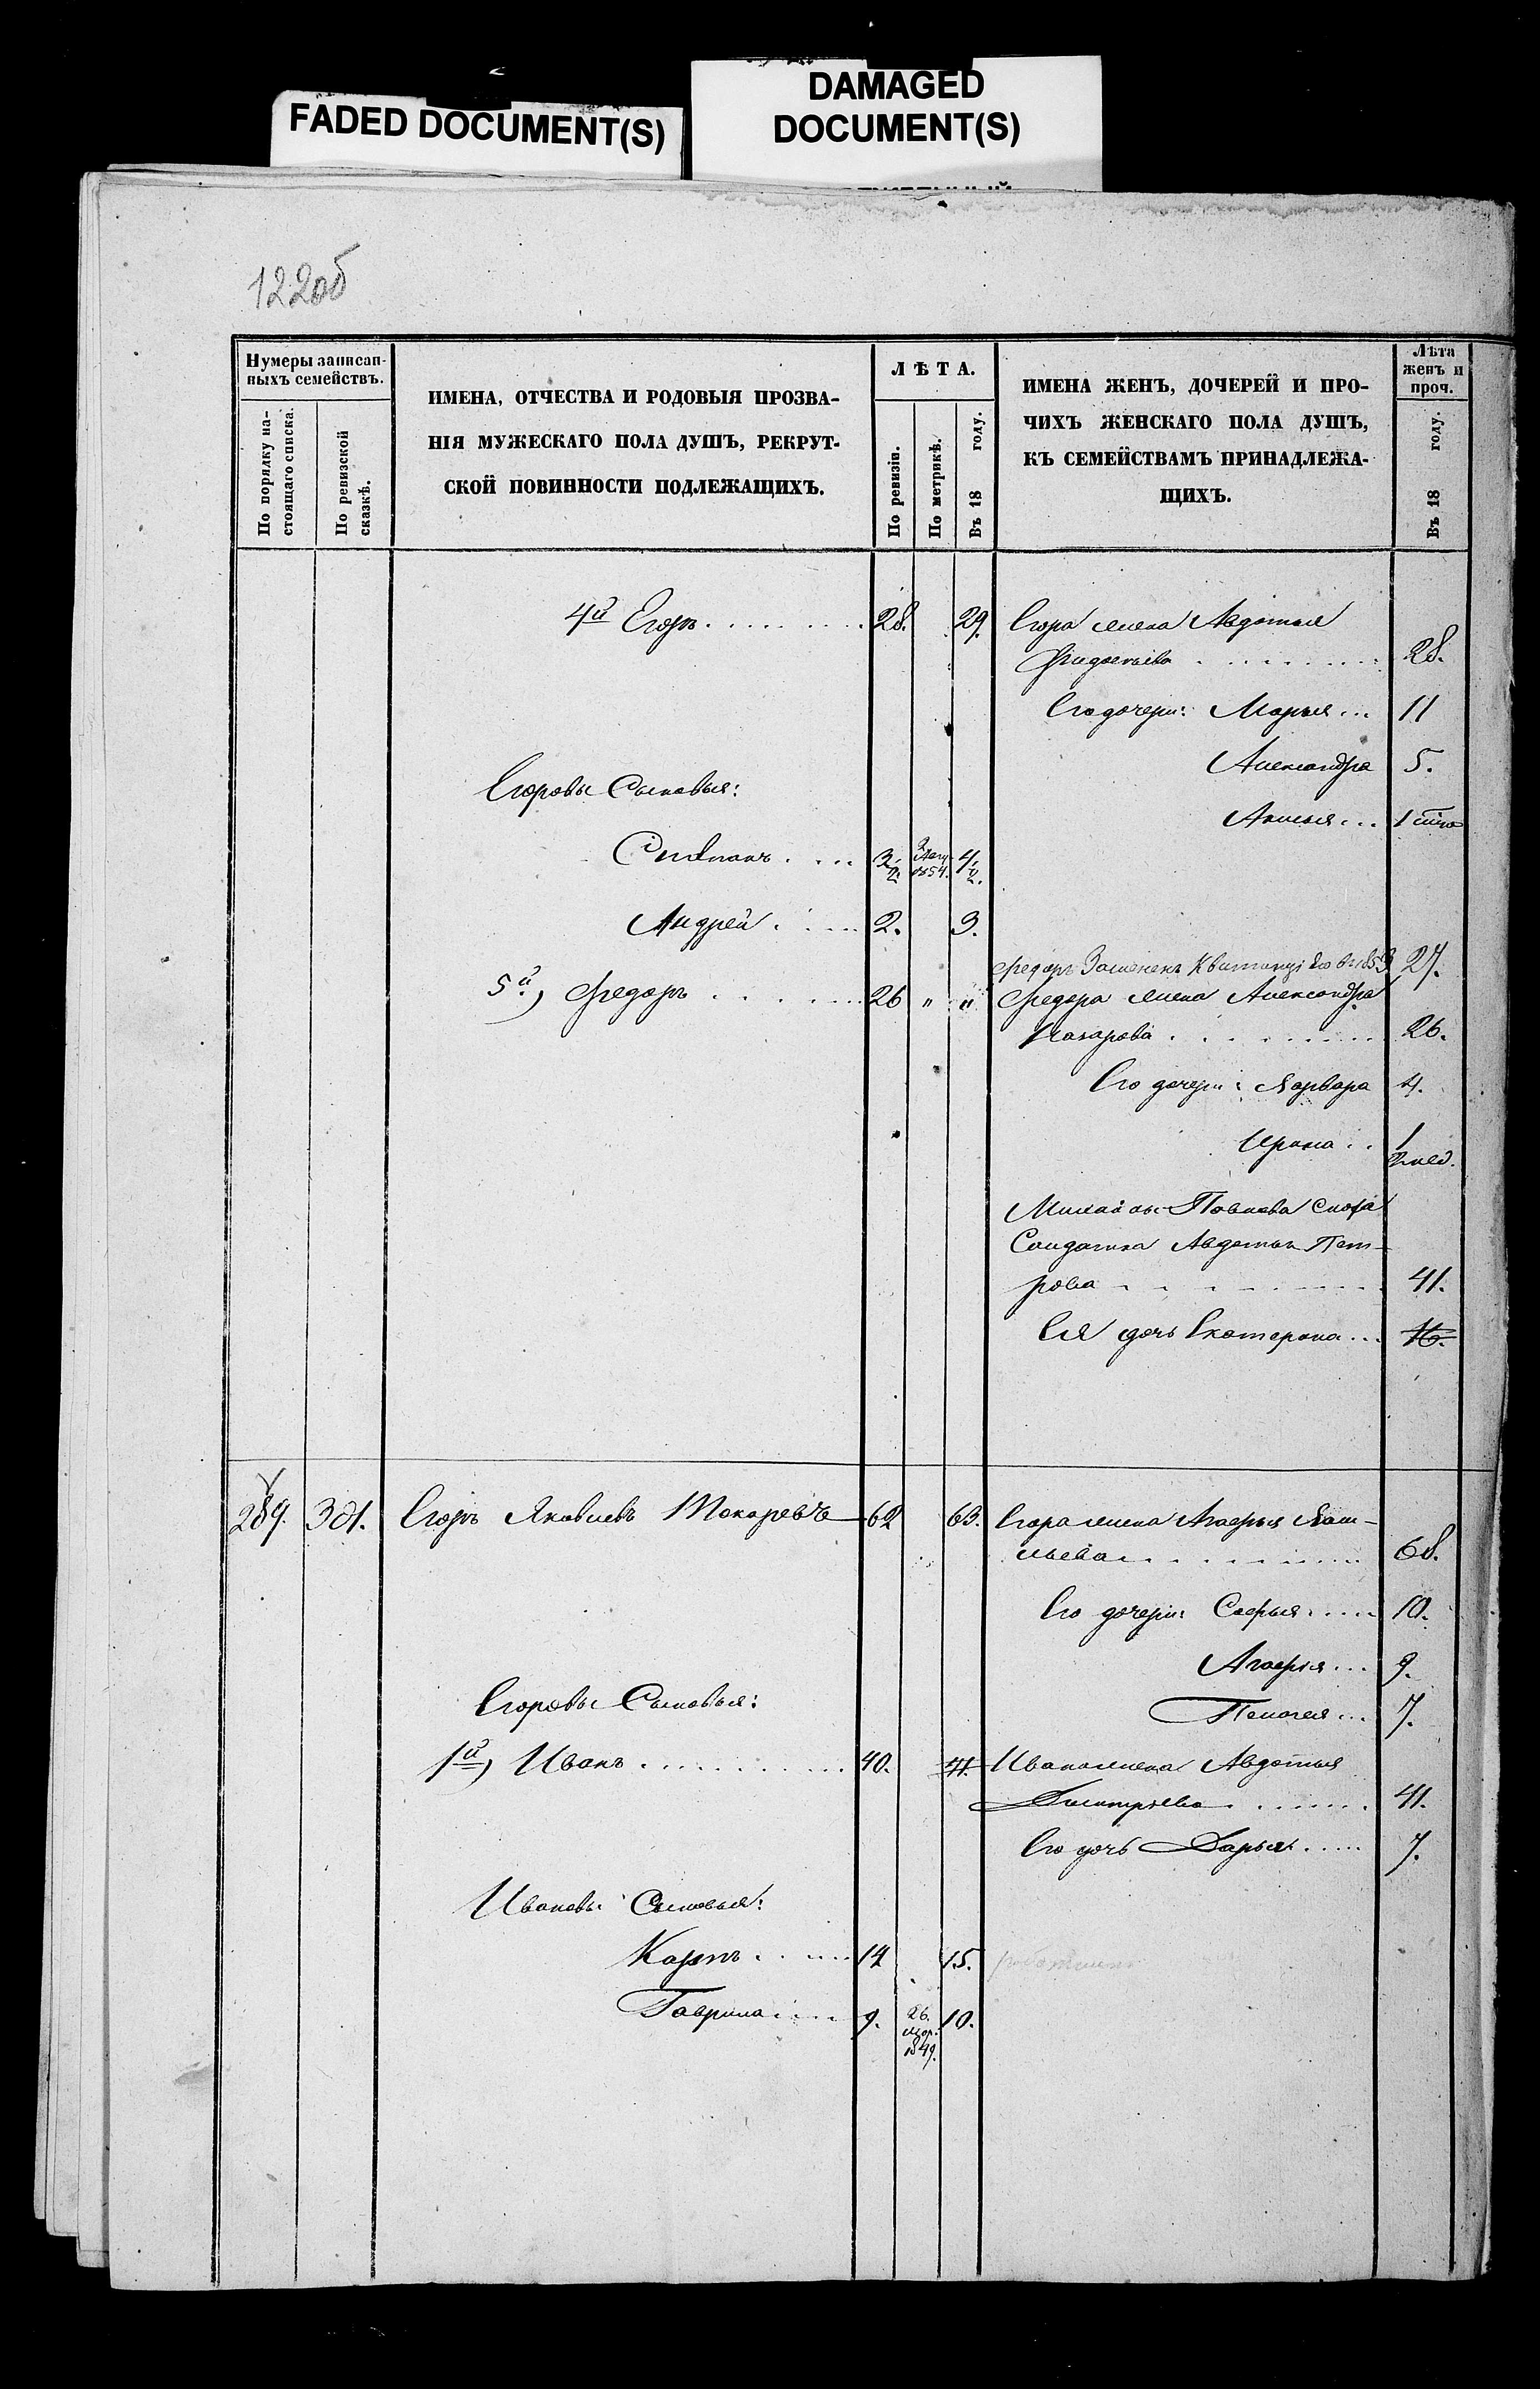 FADED DOCUMENT(S)
DAMAGED
DOCUMENT(S)
122об
Нумеры записан-
ныхъ семействъ.
По порядку на-
стоящаго списка.
По ревизской
сказкѣ.
ИМЕНА, ОТЧЕСТВА И РОДОВЫЯ ПРОЗВА-
НІЯ МУЖЕСКАГО ПОЛА ДУШЪ, РЕКРУТ-
СКОЙ ПОВИННОСТИ ПОДЛЕЖАЩИХЪ.
ЛѢТА.
По ревизіи.
По метрикѣ.
Въ 18 году.
ИМЕНА ЖЕНЪ, ДОЧЕРЕЙ И ПРО-
ЧИХЪ ЖЕНСКАГО ПОЛА ДУШЪ,
КЪ СЕМЕЙСТВАМЪ ПРИНАДЛЕЖА-
ЩИХЪ.
Лѣта
женъ и
проч.
Въ 18 году.
4й Егоръ . . . . . . . . 28. 29. Егора жена Авдотья
28.
Его дочери: Марья ... 11
Александра 5.
Егоровы Сыновья:
Анисья ... 1
Степанъ . . . . 3 1/2. 2 1854. 4 1/2.
Андрей . . . . 2. 3.
Федоръ Замененъ Квитанціею въ 1853 27.
5й) Федоръ . . . . . . 26 " " Федора жена Александра
Назарова . . . . . . . . 26.
Его дочери: Варвара 4.
Ирина . . 1
2 нед.
Павлова сноха
Солдатка Авдотья Пет-
рова . . . . . . . . 41.
Ея дочь Екатерина ... 16.
289. 301. Егоръ Яковлевъ Токаревъ 62 63. Егора жена Агафья Ва-
сильева . . . . . . . . 68.
Его дочери: Софья ..... 10.
Агафія ... 9.
Егоровы Сыновья:
Пелагея ... 7.
1й) Иванъ . . . . . . . . 40. 41. Ивана жена Авдотья
Дмитріева . . . . . . . 41.
Его дочь Дарья ..... 7.
Ивановы Сыновья:
Карпъ . . . . . 14 15. работникъ
Гаврила .... 9. 26. мар. 1849. 10.